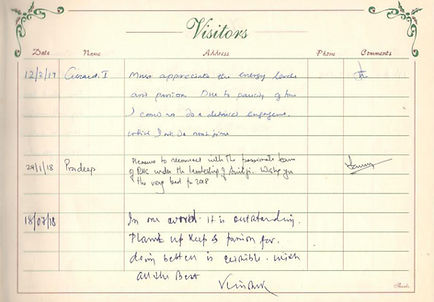 Visitors
Date Name Address Phone Comments
12/2/17 Gerard. I Much appreciate the energy levels
and passion. Due to paucity of time
I could not do a detailed engagement
which I will do next time
24/1/18 Pradeep Pleasure to reconnect with the passionate team
of under the leadership of Wish you
the very best for 2018
18/07/18 In one word - it is outstanding.
Plant up keep & passion for
doing better is visible. wish
all the Best